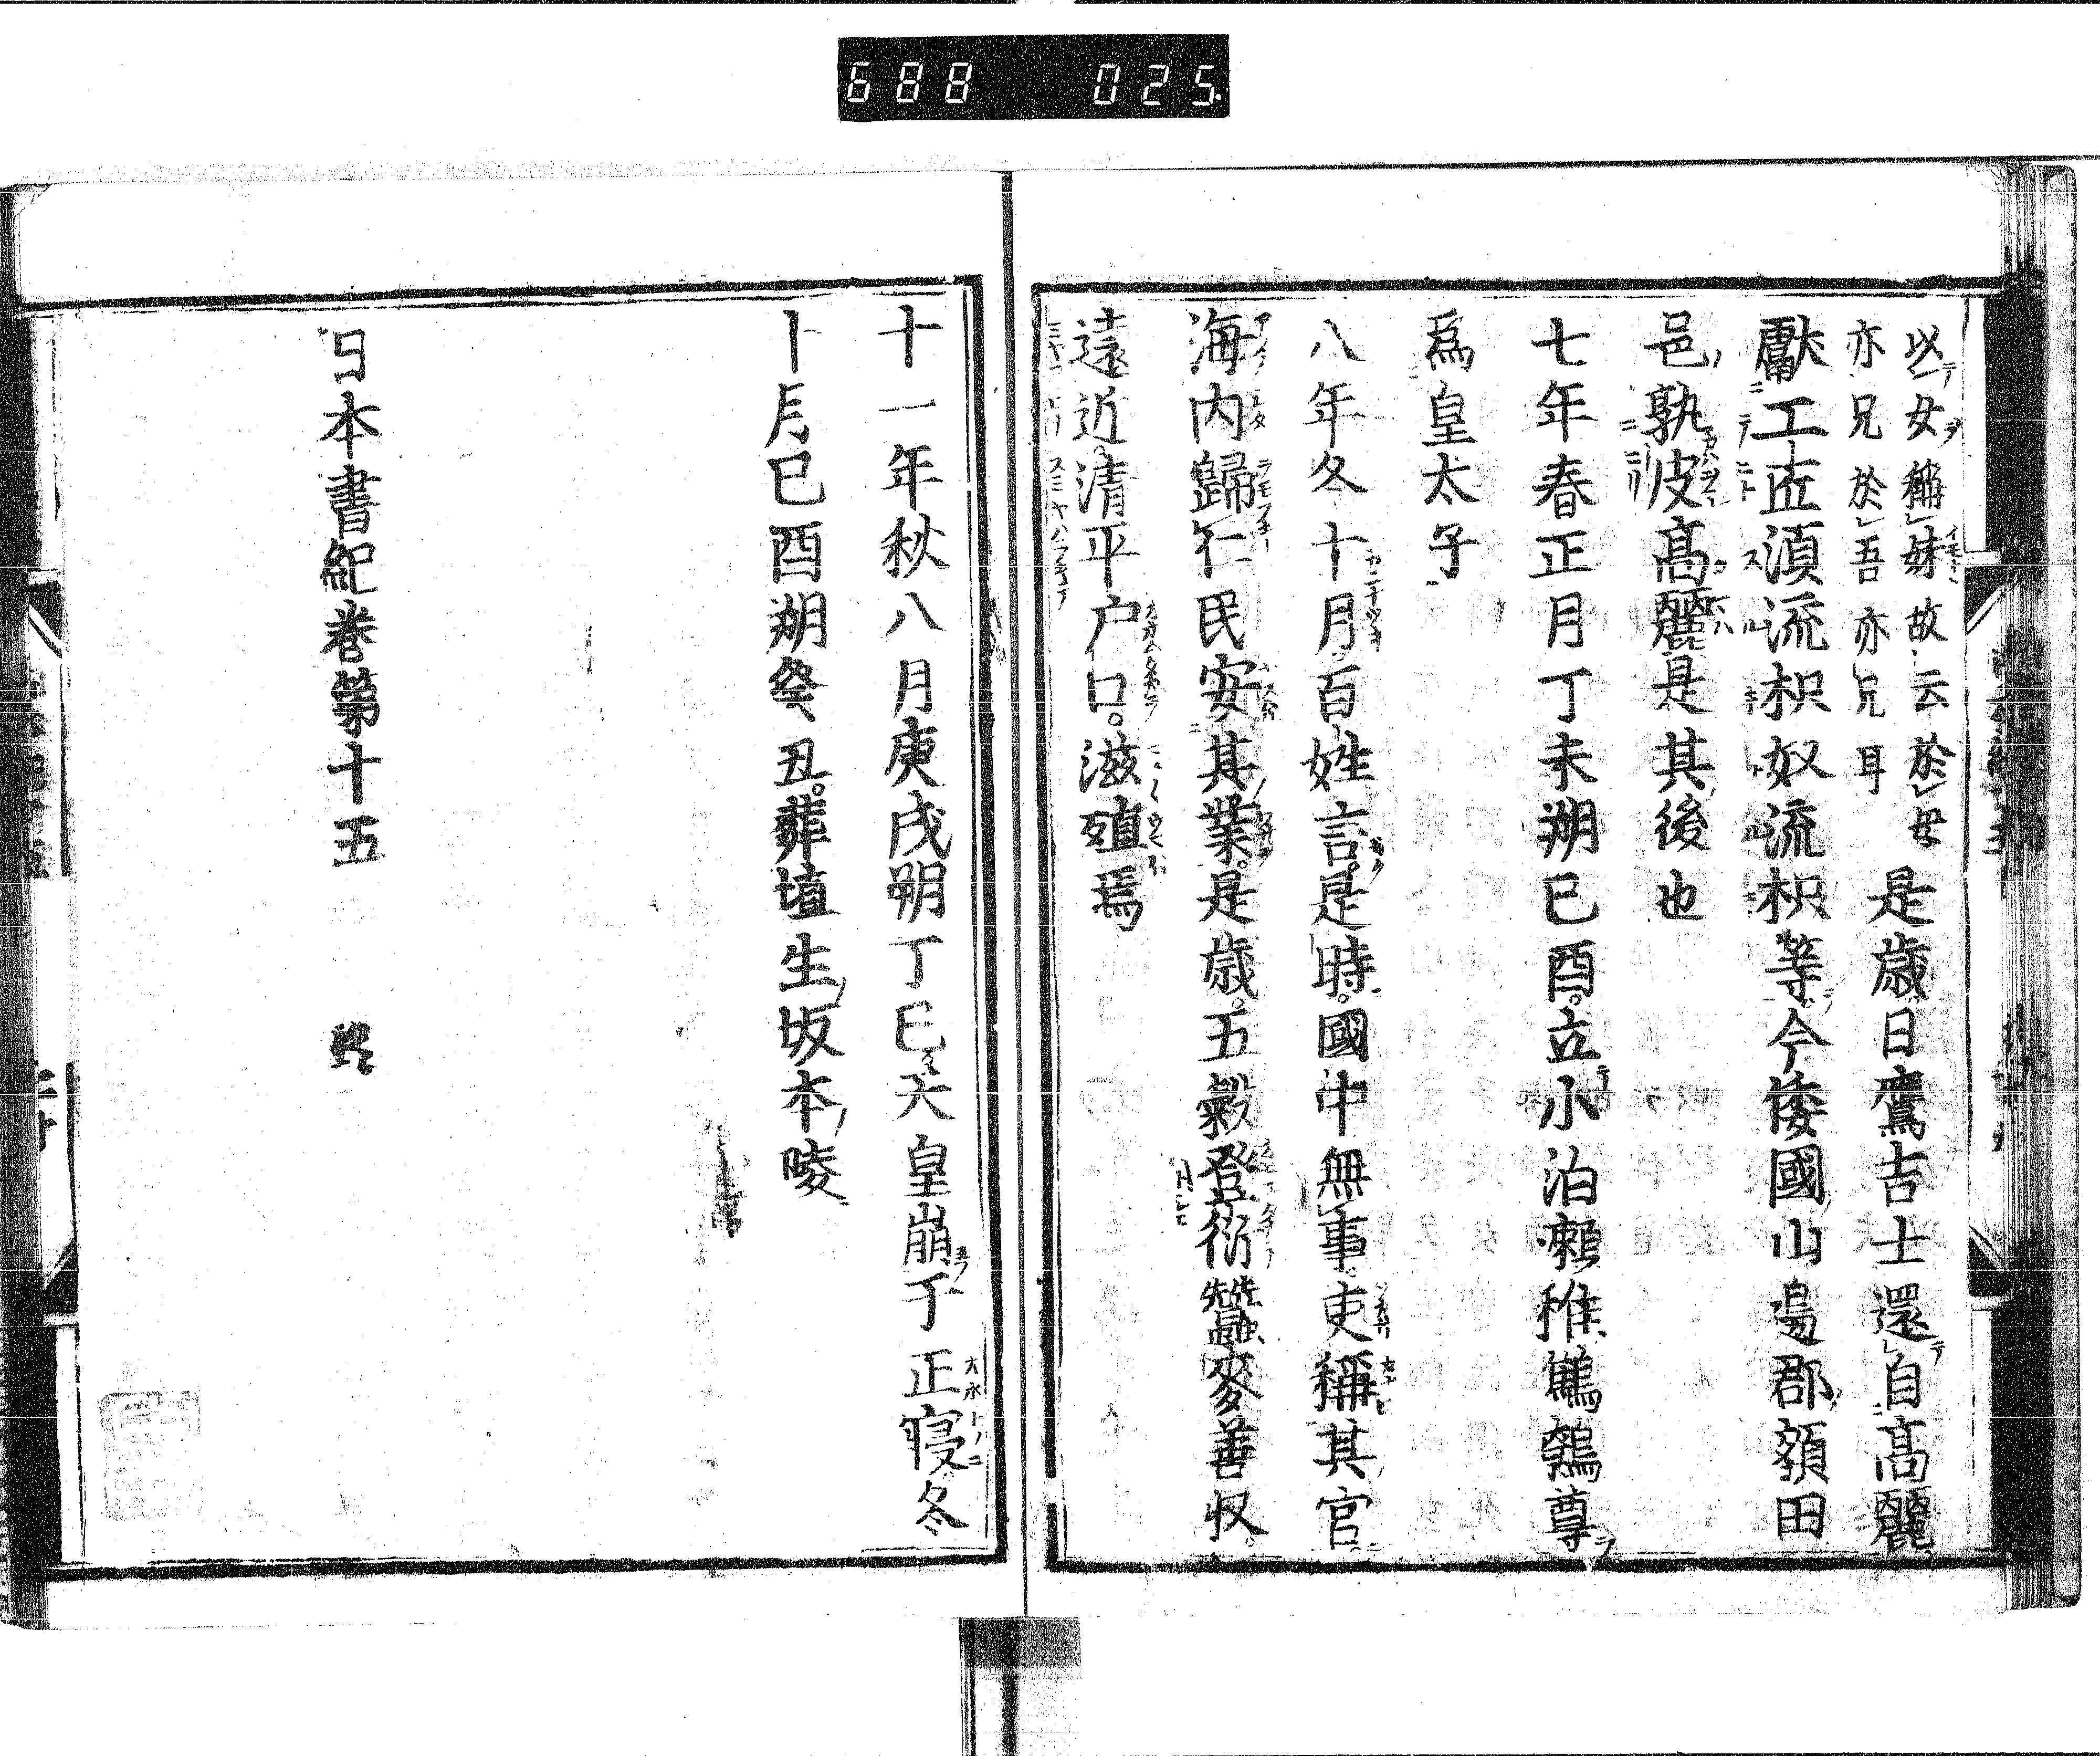 688 025
以女稱妹故云於母
亦兄於吾亦兄耳
是歳日鷹吉士還自高麗
獻工匠須流枳奴流枳等今倭國山邊郡額田
邑熟皮高麗是其後也
七年春正月丁未朔己酉。立小泊瀬稚鷦鷯尊
爲皇太子
八年冬十月。百姓言。是時。國中無事。吏稱其官
海内歸仁民安其業。是歳。五穀登衍蠶麥善收
遠近清平戸口。滋殖焉
十一年秋八月庚戌朔丁巳天皇崩于正寝冬
十月己酉朔癸丑。葬埴生坂本陵
日本書紀巻第十五 終